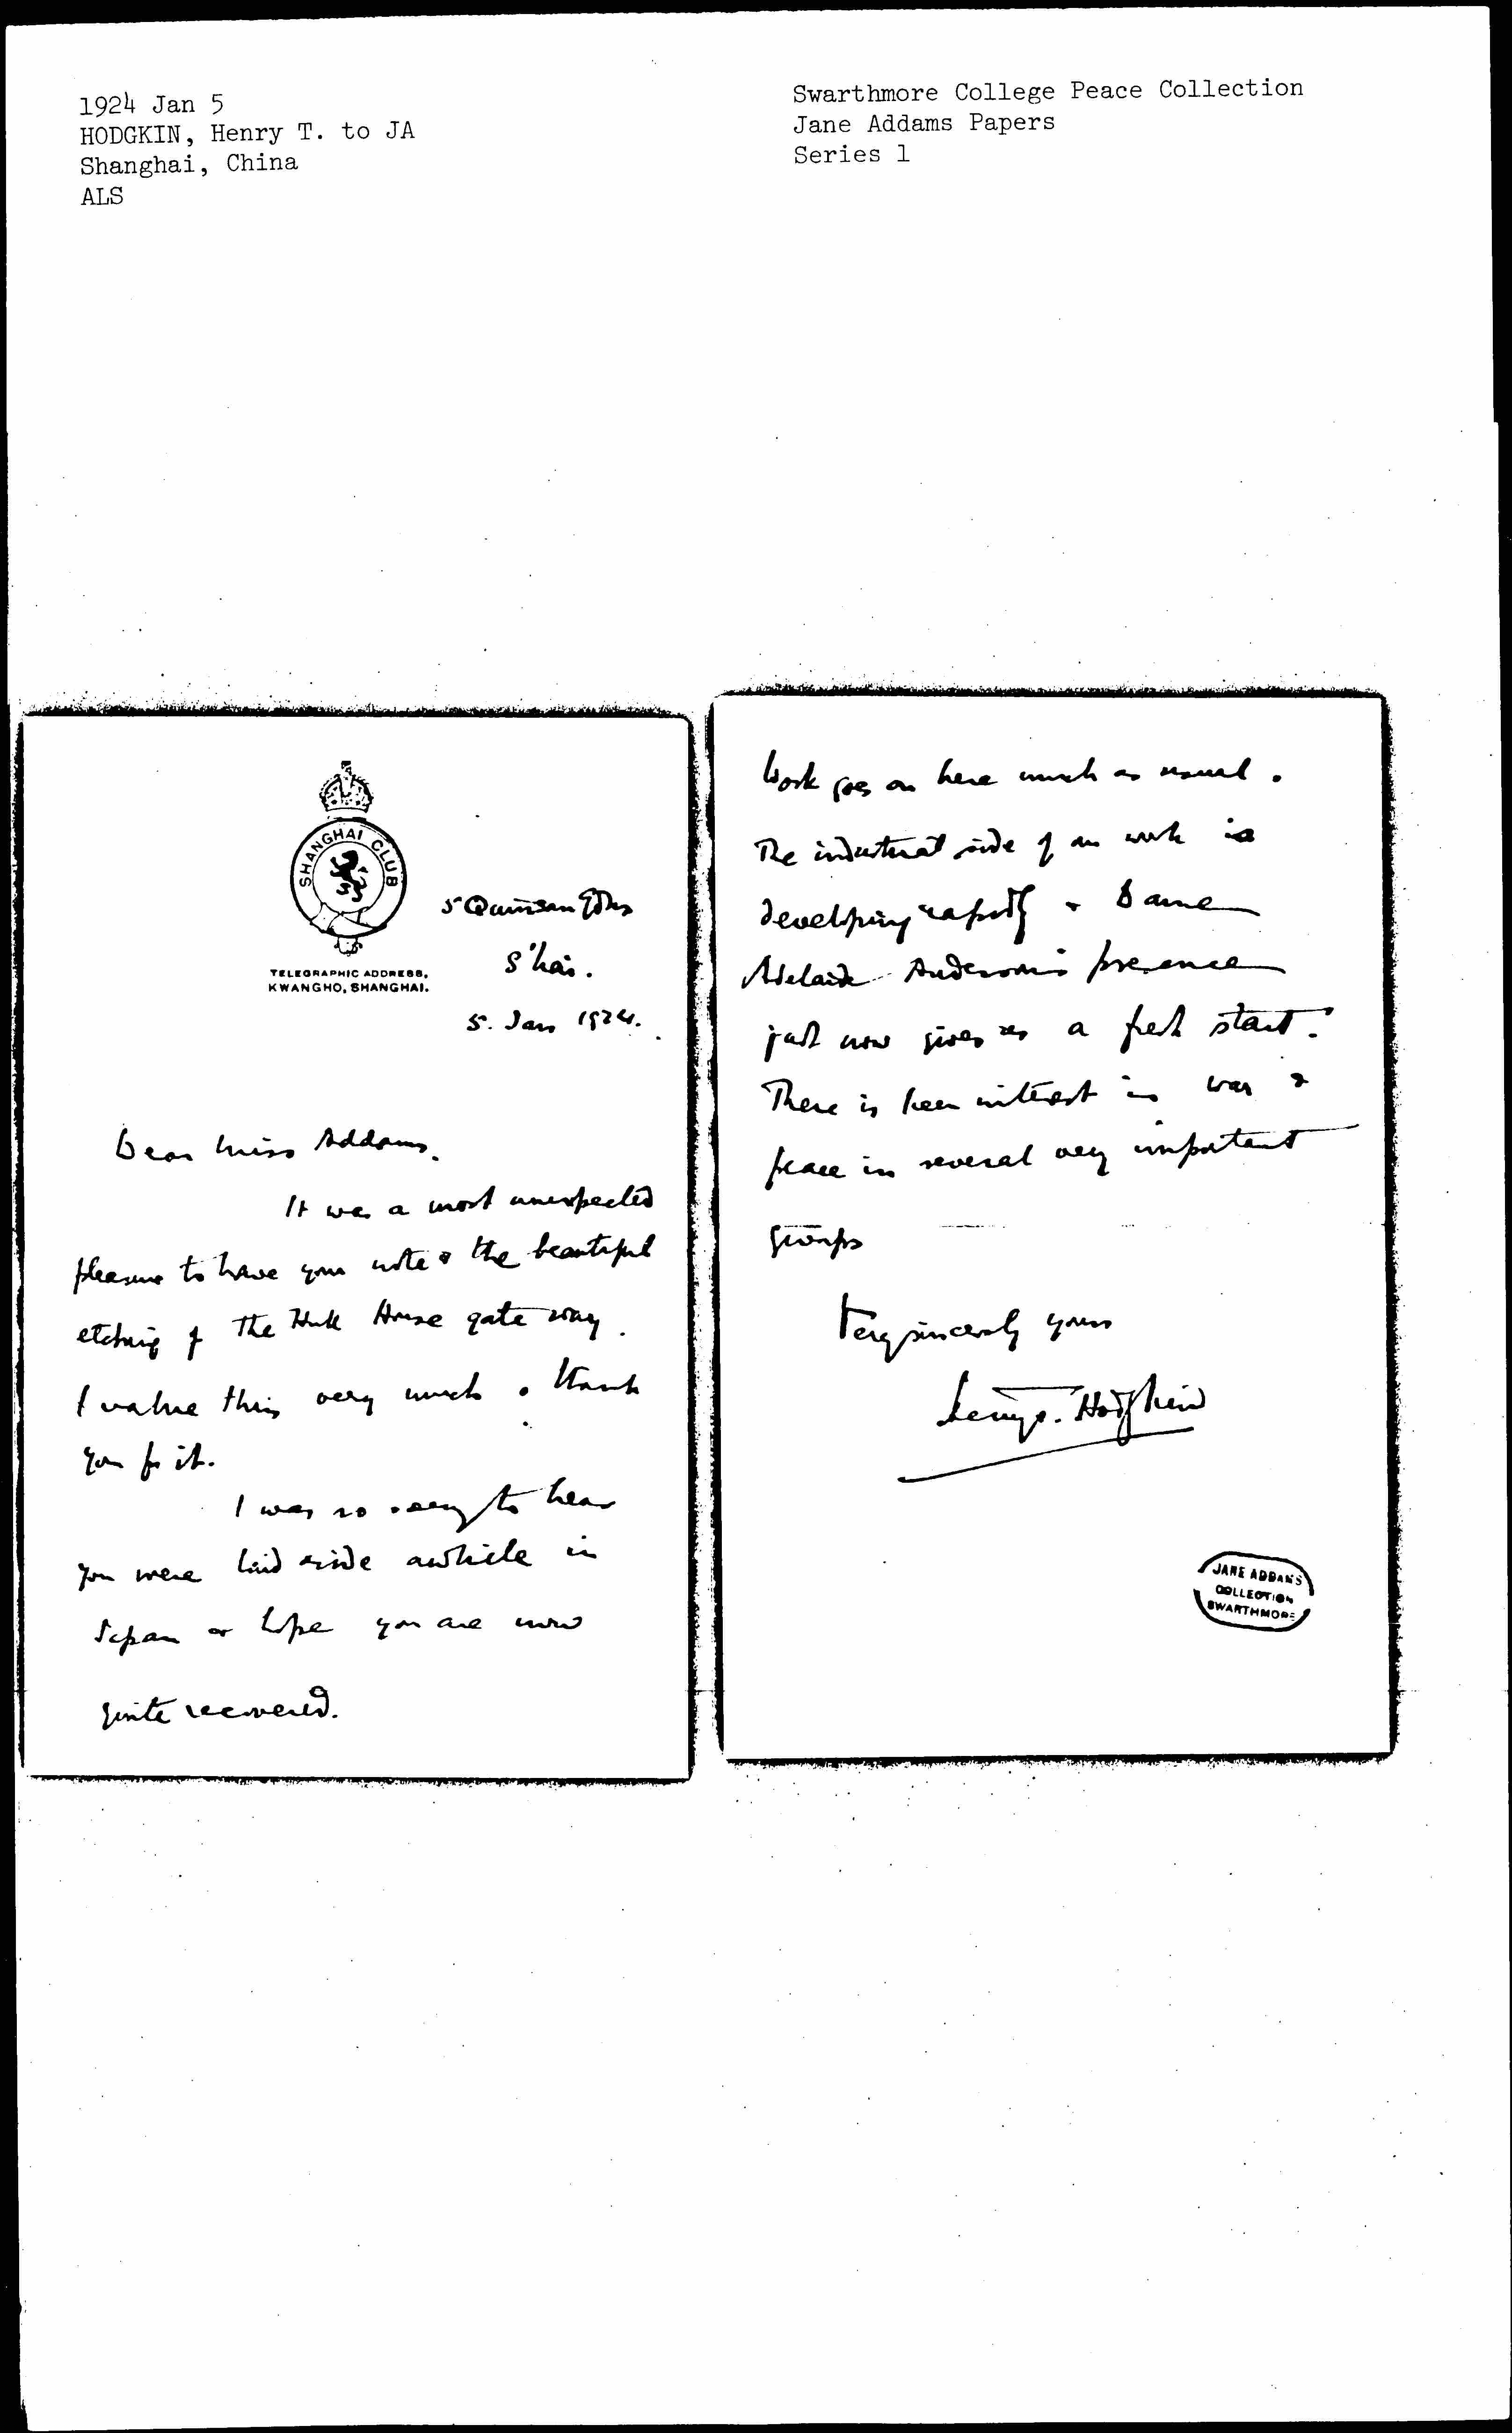 1924 Jan 5
HODGKIN, Henry T. to JA
Shanghai, China
ALS
Swarthmore College Peace Collection
Jane Addams Papers
Series 1
SHANGHAI CLUB
TELEGRAPHIC ADDRESS,
KWANGHO, SHANGHAI.
5 Quinsan Gdns
S'hai.
5. Jan 1924.
Dear Miss Addams,
It was a most unexpected
pleasure to have your note & the beautiful
etching of the Hull House gate way.
I value this very much & thank
you for it.
I was so sorry to hear
you were laid aside awhile in
Japan & hope you are now
quite recovered.
Work goes on here much as usual.
The industrial side of our work is
developing rapidly & Dame
Adelaide Anderson's presence
just now gives us a fresh start.
There is keen interest in war &
peace in several very important
groups
Very sincerely yours
Henry T. Hodgkin
JANE ADDAMS
COLLECTION
SWARTHMORE